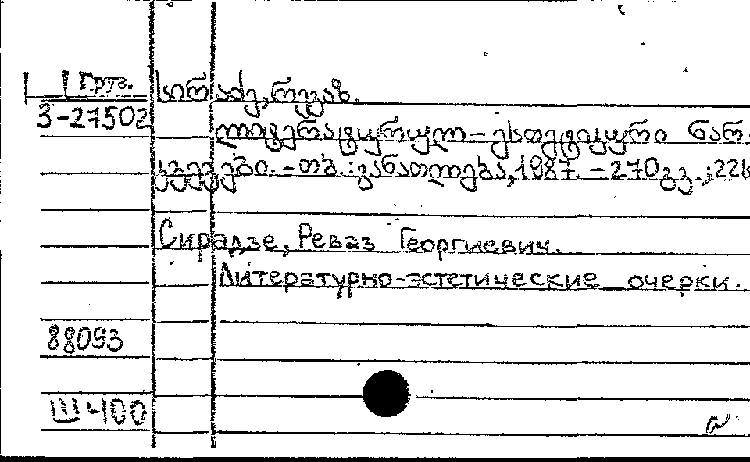 Груз.
სირაძე, რევაზ.
3-27502
ლიტერატურულ-ესთეტიკური ნარ-
კვევები. - თბ.: განათლება, 1987. - 270გვ.; 22
Сирадзе, Реваз Георгиевич.
Литературно-эстетические очерки.
88093
Ш400